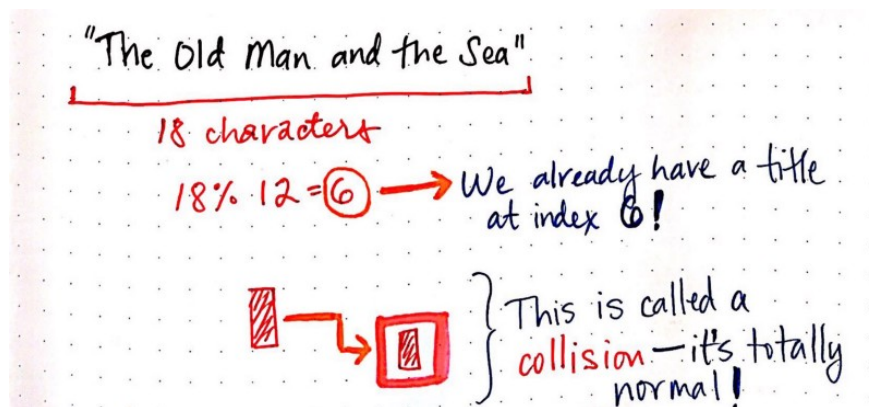 "The Old Man and the Sea"
18 characters
18% 12 = 6 We already have a title
at index 6!
This is called a
collision — it's totally
normal!